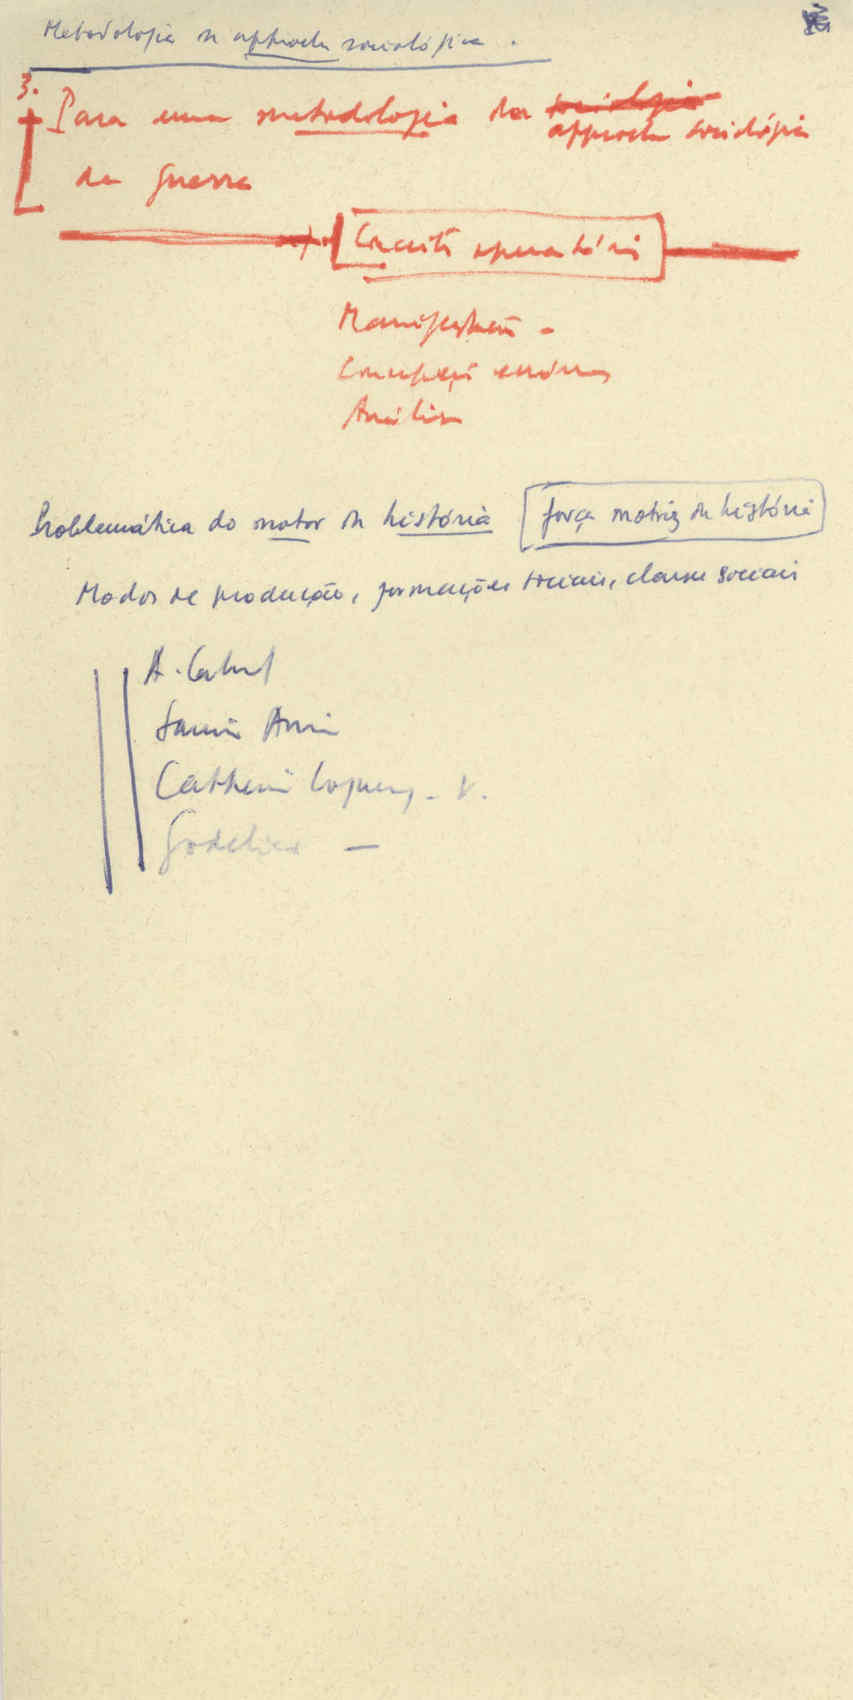 Metodologia da approche sociológica.
3.
Para uma metodologia da sociologia
approche sociológica
da guerra
Conceitos operatórios
Manifestação -
Concepções erróneas
Análise
Problemática do motor da história força motriz da história
Modos de produção, formações sociais, classes sociais
A. Cabral
Samir Amin
Catherine Coquery - V.
Godelier —